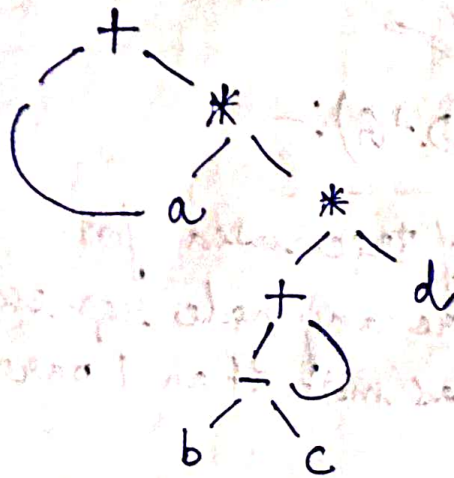 +
*
a *
+ d
-
b c